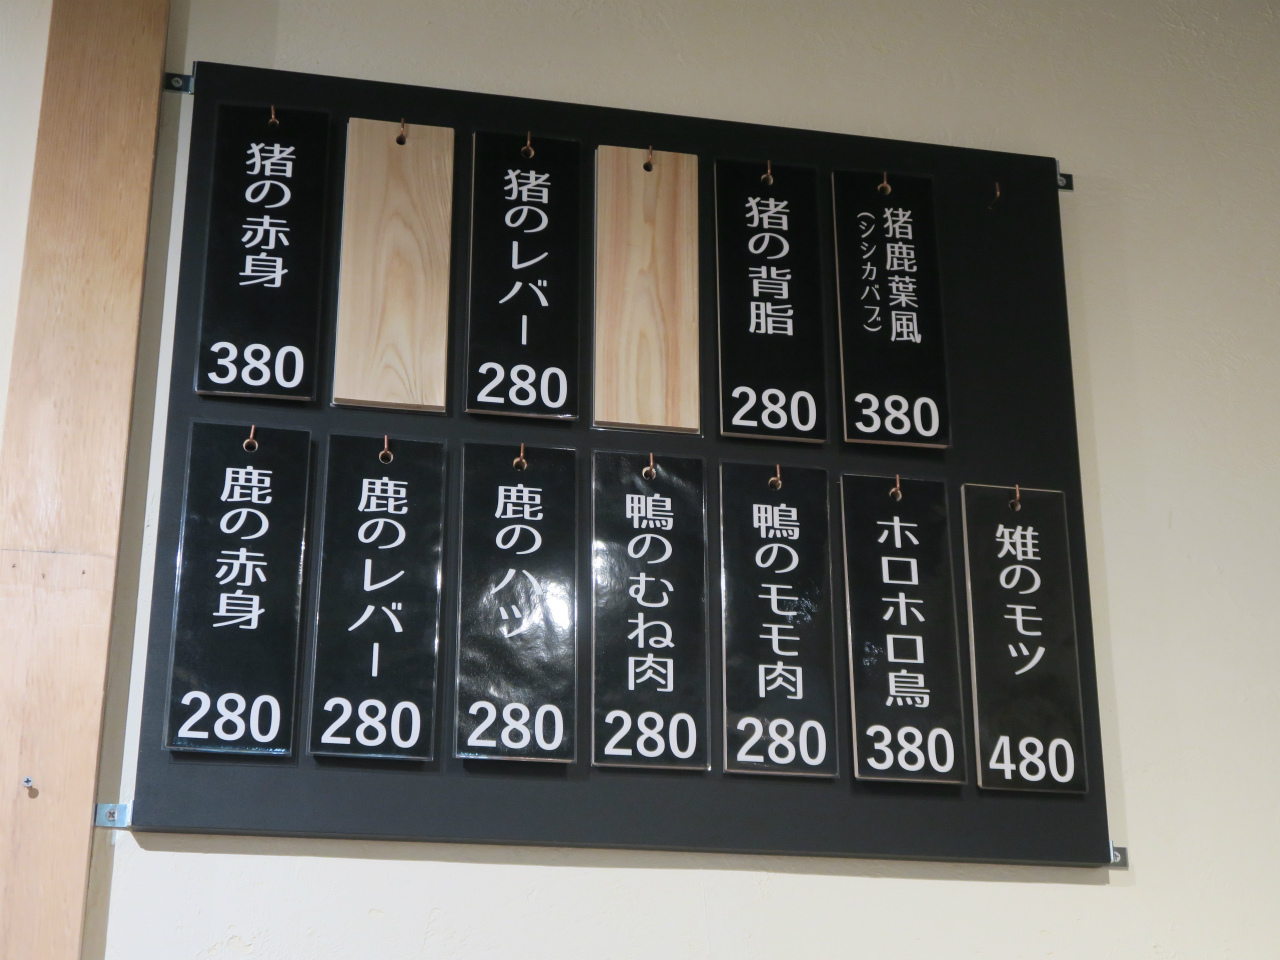 猪の赤身
380
猪のレバー
280
猪の背脂
280
猪鹿葉風
(シシカバブ)
380
鹿の赤身
280
鹿のレバー
280
鹿のハツ
280
鴨のむね肉
280
鴨のモモ肉
280
ホロホロ鳥
380
雉のモツ
480